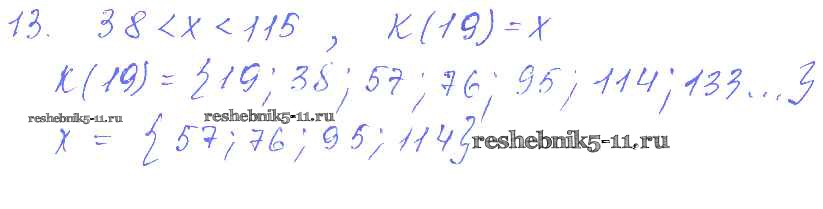 13. 38 < x < 115, К(19) = x
К(19) = {19; 38; 57; 76; 95; 114; 133...}
reshebnik5-11.ru reshebnik5-11.ru
x = {57; 76; 95; 114} reshebnik5-11.ru